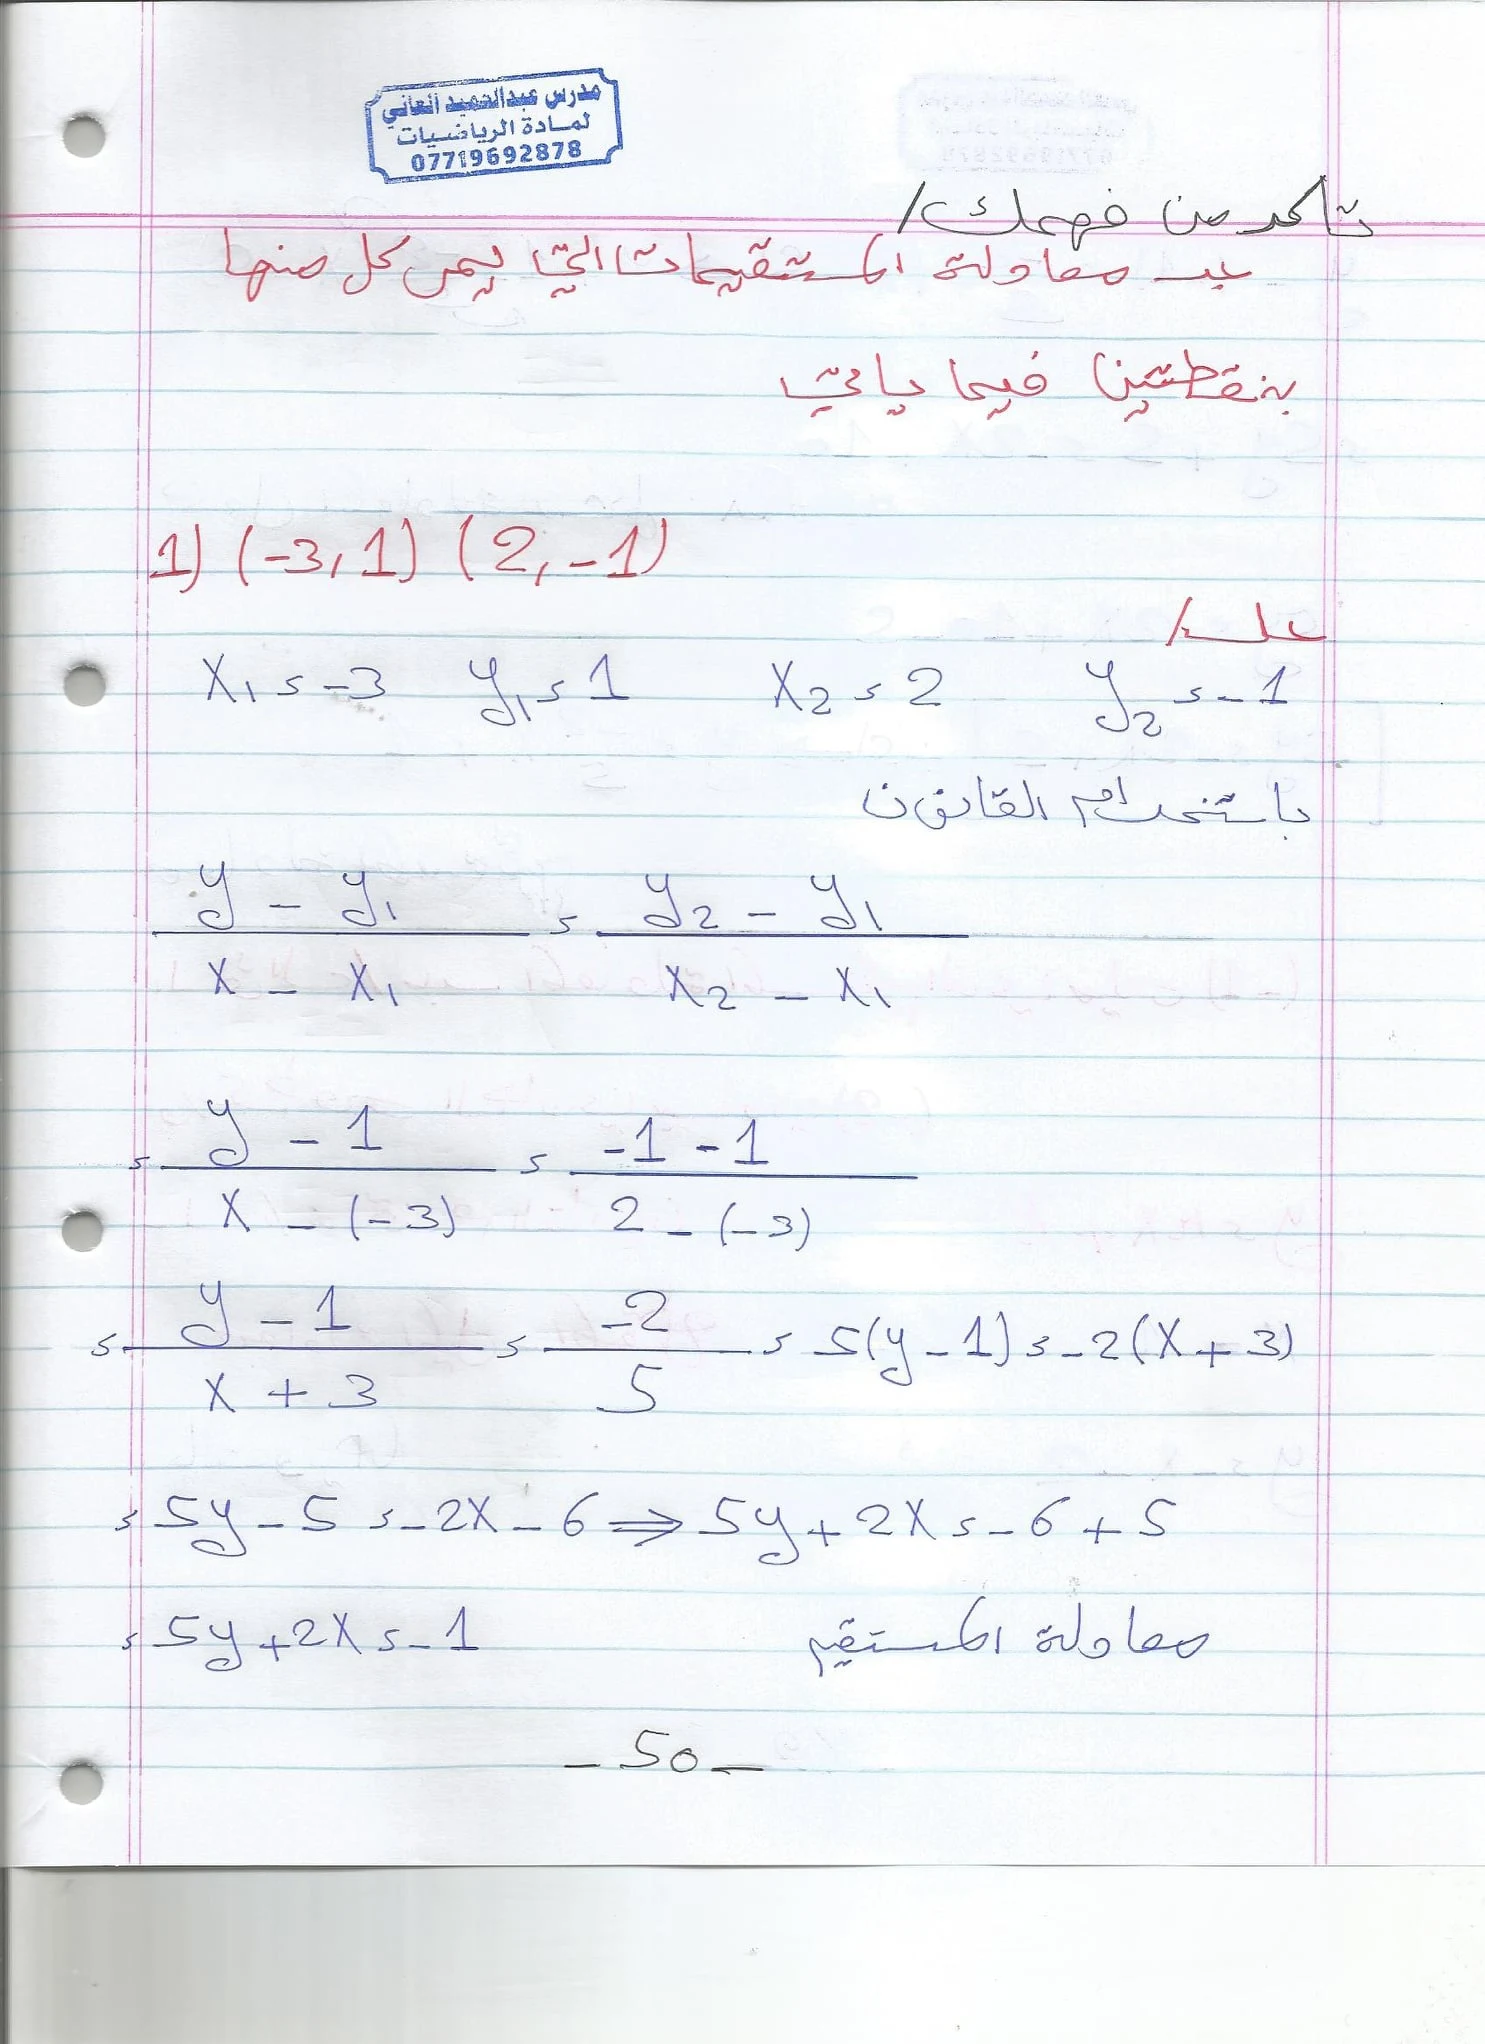 مدرس عبدالحميد العاني
لمادة الرياضيات
07719692878
تأكد من فهمك /
جد معادلة المستقيمات التي يمر كل منها
بنقطتين فيما يأتي
1) (-3, 1) (2, -1)
حله /
x₁ = -3 y₁ = 1 x₂ = 2 y₂ = -1
باستخدام القانون
y - y₁ = y₂ - y₁
x - x₁ x₂ - x₁
= y - 1 = -1 - 1
x - (-3) 2 - (-3)
= y - 1 = -2 = 5(y - 1) = -2(x + 3)
x + 3 5
= 5y - 5 = -2x - 6 ⇒ 5y + 2x = -6 + 5
= 5y + 2x = -1 معادلة المستقيم
- 50 -